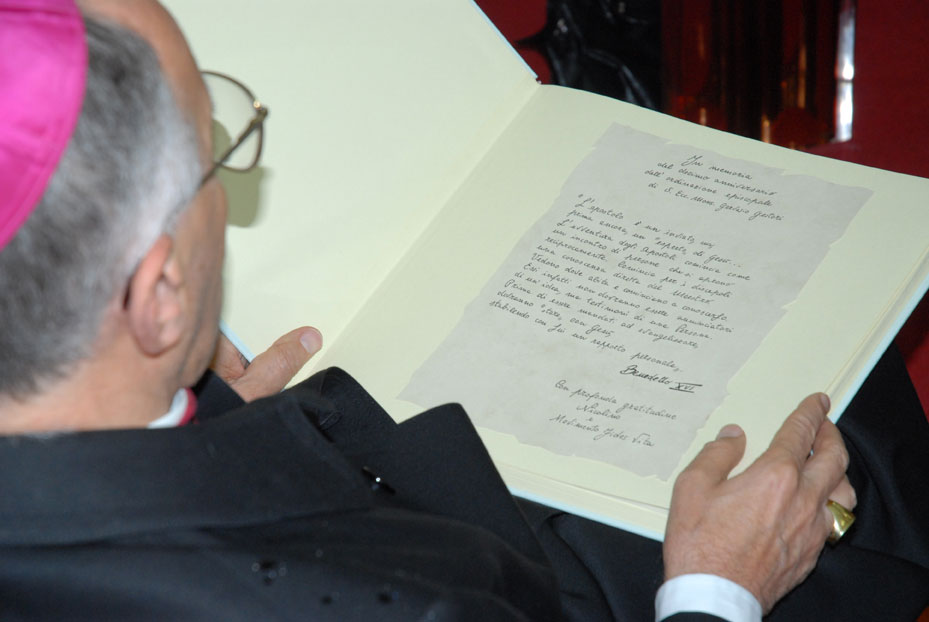 In memoria
del decimo anniversario
dell'ordinazione episcopale
di S. Ecc. Mons.
"L'apostolo è un inviato, ma,
prima ancora, un "esperto" di Gesù...
L'avventura degli Apostoli comincia come
un incontro di persone che si aprono
reciprocamente. Comincia per i discepoli
una conoscenza diretta del Maestro
Vedono dove abita e cominciano a conoscerlo.
Essi infatti non dovranno essere annunciatori
di un'idea, ma testimoni di una Persona.
Prima di essere mandati ad evangelizzare,
dovranno "stare" con Gesù,
stabilendo con Lui un rapporto personale,
Benedetto XVI
Con profonda gratitudine
Nicolino
e
Movimento Fides Vita